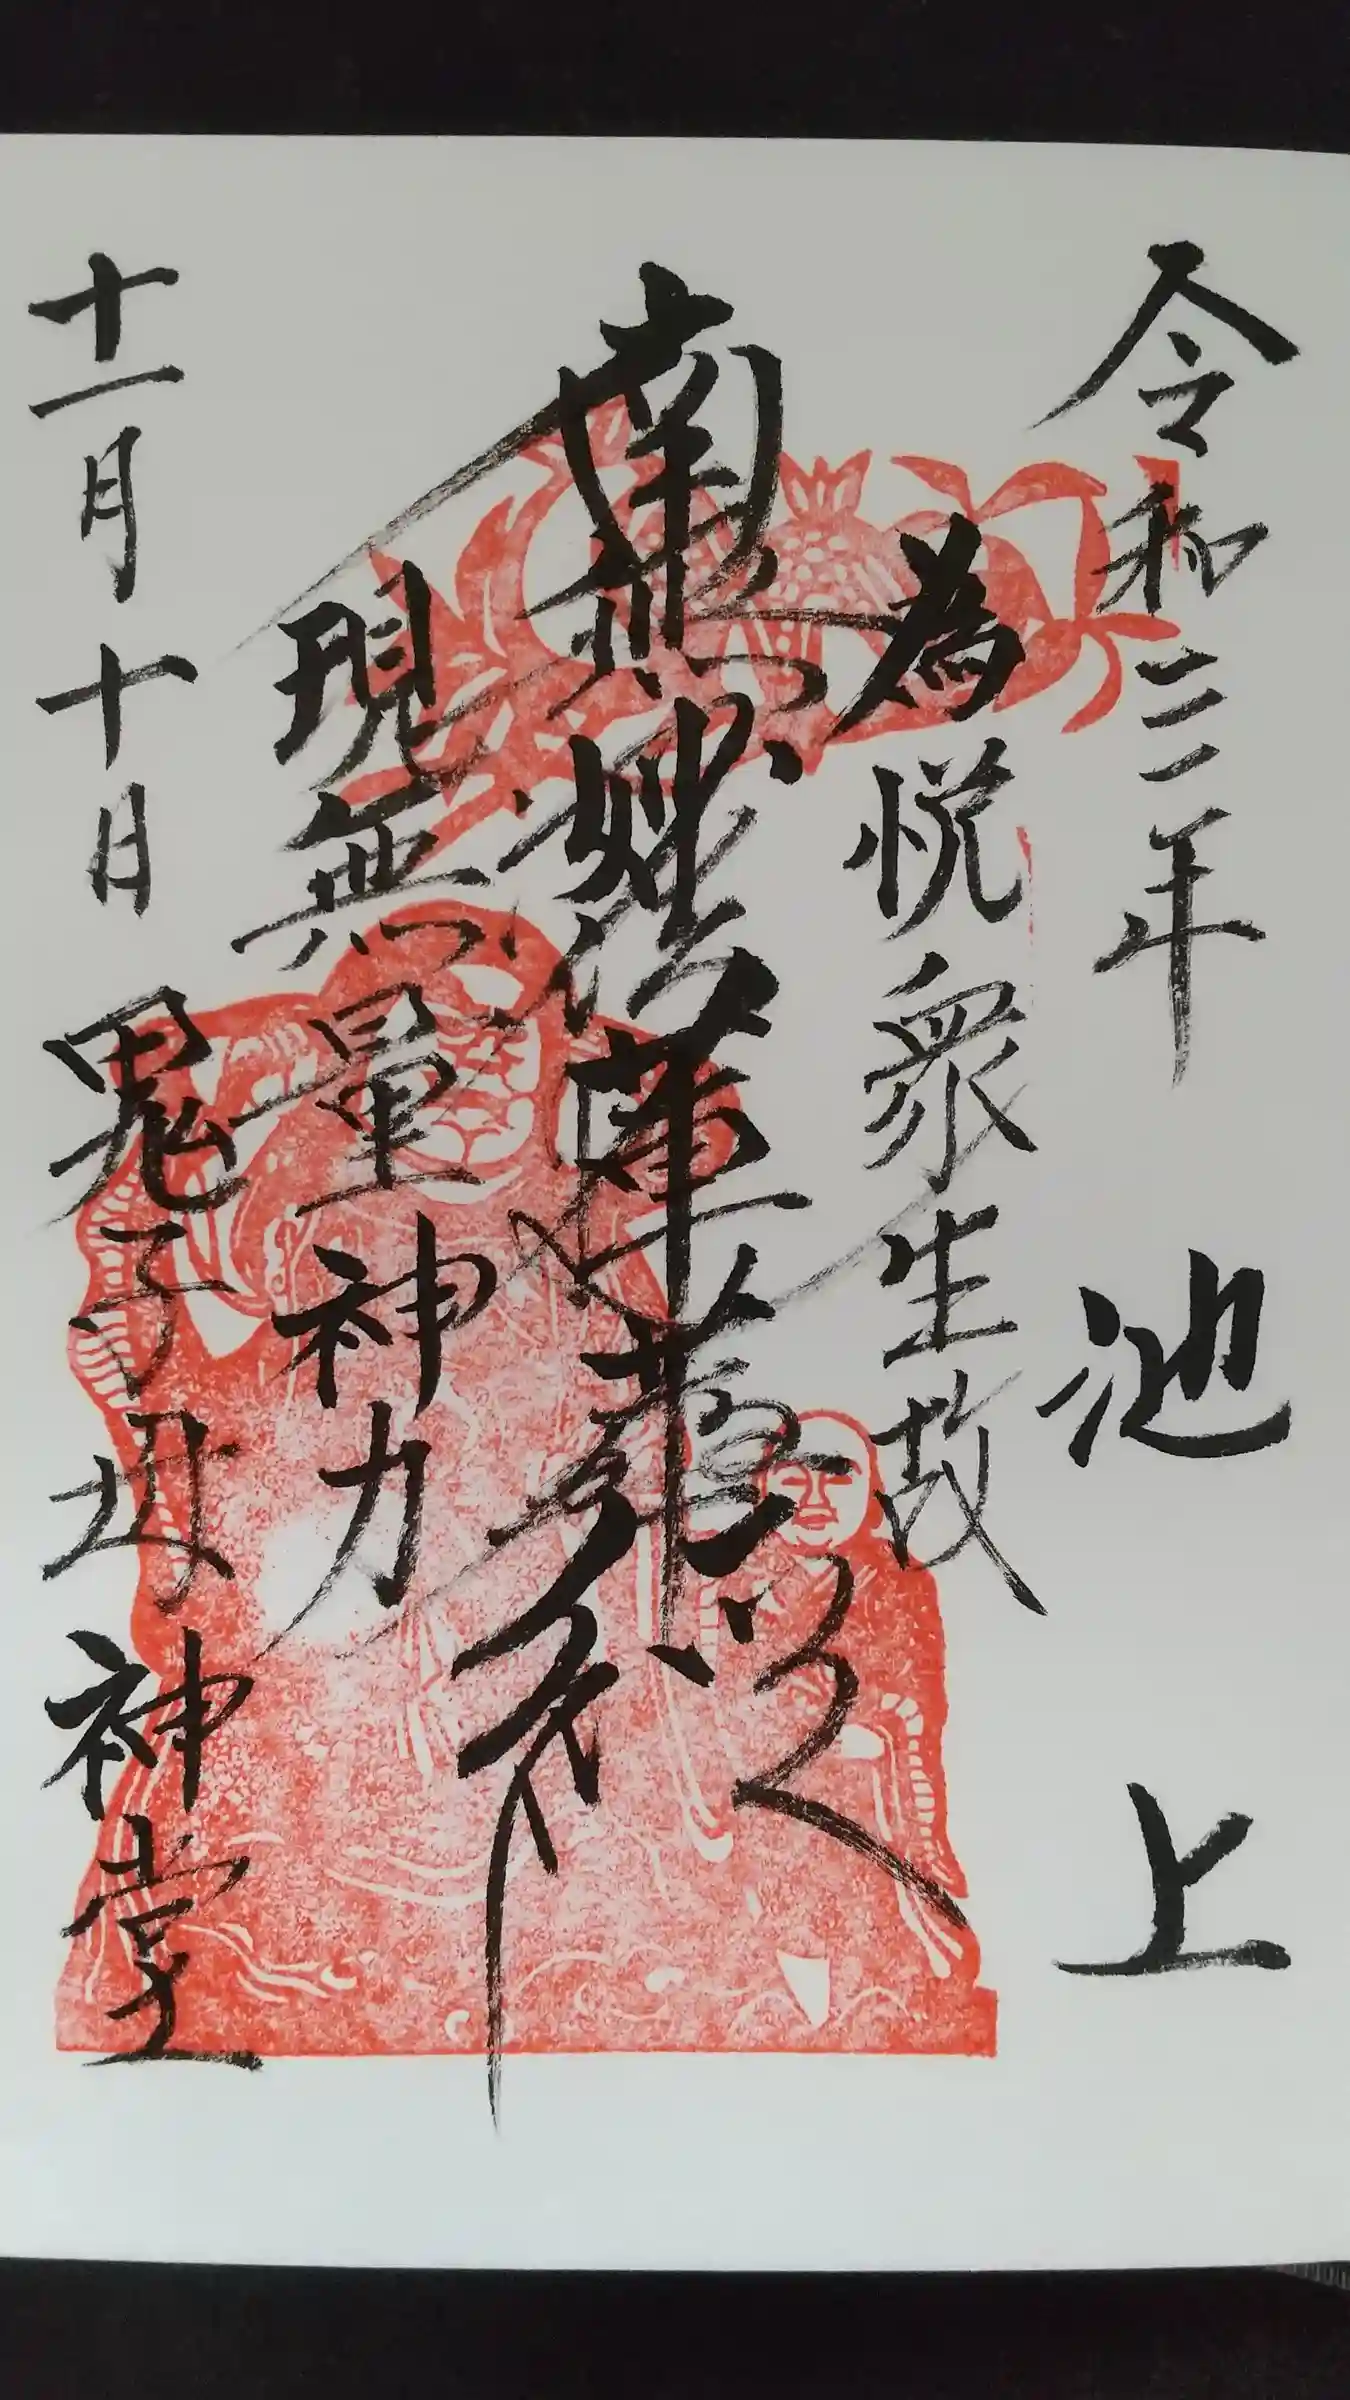 令和三年 池上
為悦衆生故
南無妙法蓮華経
現無量神力
十一月十日 鬼子母神堂